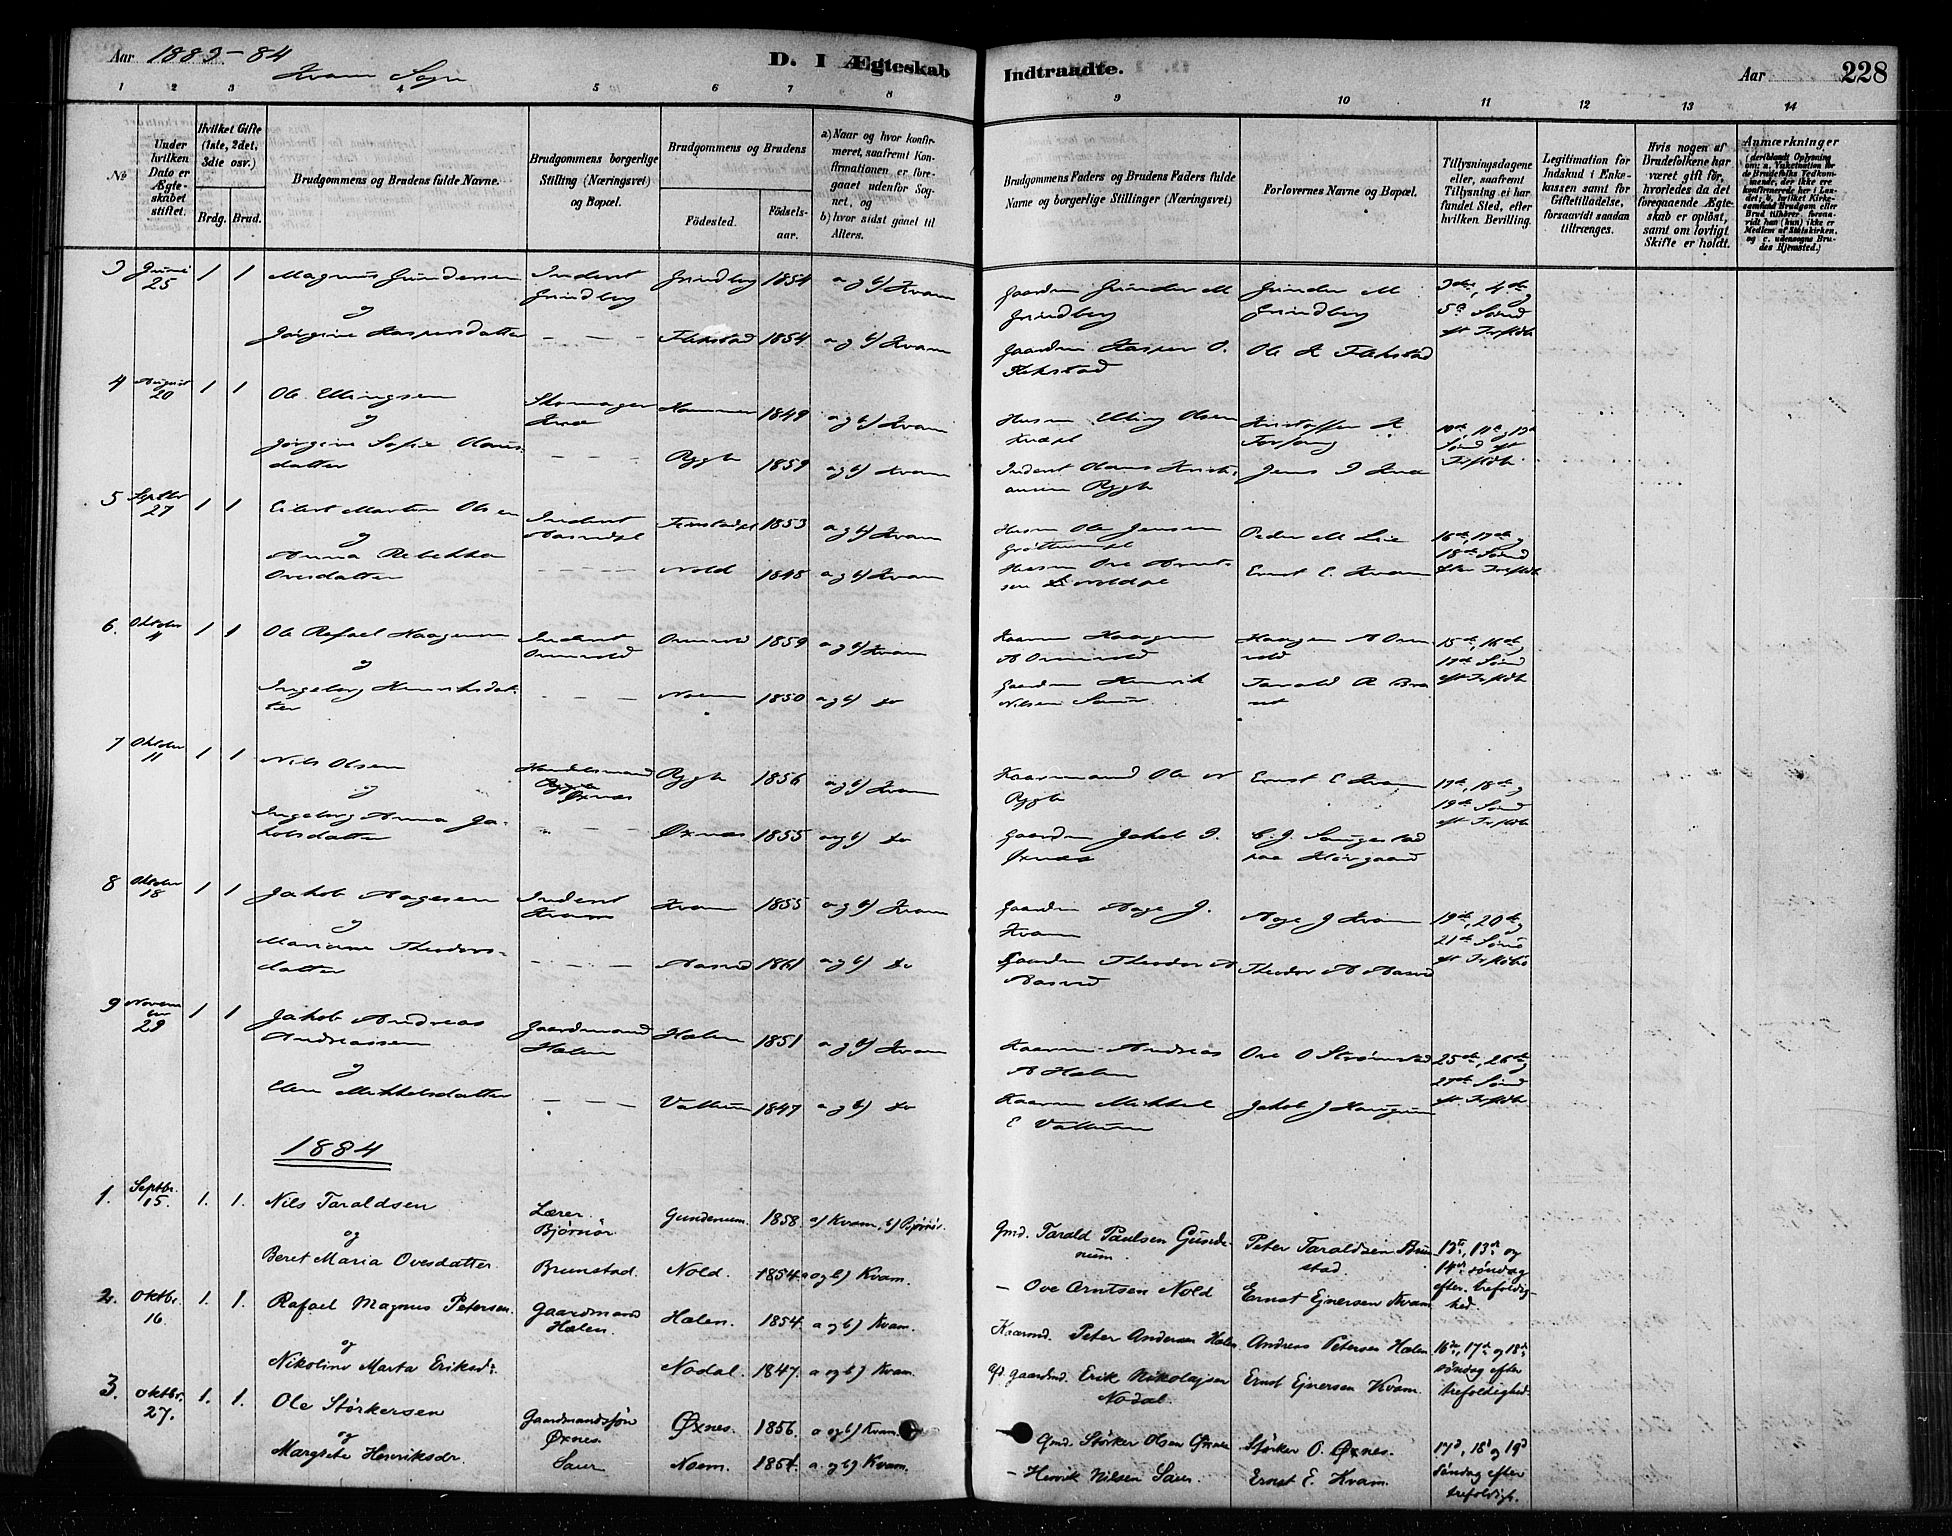 Aar 1883-84
Kvam Sogn
D. I Ægteskab
Indtraadte.
Aar
228
1 2 3 4 5 6 7 8
9 10 11 12 13 14
No
Under hvilken Dato er Ægteskabet stiftet.
Hvilket Gifte (1ste, 2det, 3die osv.)
Brdg. Brud.
Brudgommens og Brudens fulde Navne.
Brudgommens borgerlige Stilling (Næringsvei) og Bopæl.
Brudgommens og Brudens
Födested.
Födselsaar.
a) Naar og hvor konfirmeret, saafremt Konfirmationen er foregaaet udenfor Sognet, og
b) hvor sidst gaaet til Alters.
Brudgommens Faders og Brudens Faders fulde Navne og borgerlige Stillinger (Næringsvei)
Forlovernes Navne og Bopæl.
Tillysningsdagene eller, saafremt Tillysning ei har fundet Sted, efter hvilken Bevilling.
Legitimation for Indskud i Enkekassen samt for Giftetilladelse, forsaavidt saadan tiltrænges.
Hvis nogen af Brudefolkene har været gift för, hvorledes da det foregaaende Ægteskab er oplöst, samt om lovligt Skifte er holdt.
Anmærkninger
3 Juni 25 1 1 Magnus Gundersen Inderst Grindberg Grindberg 1854 a og b) Kvam Gaardm Gunder M Grindberg Gunder M Grindberg 3die, 4de og 5te Sønd eft Trefoldh
og
Jørgine Kaspersdatter - - - Flekstad 1854 a og b) Kvam Gaardm Kasper O. Flekstad Ole K Flekstad
4 August 20 1 1 Ole Ellingsen Skomager Hammer 1849 a og b) Kvam Husm Elling Olsen
og
Jørgine Sofie Olausdatter - - - Rygh 1859 a og b) Kvam Inderst Olaus Kristiansen Rygh
5 Septbr 27 1 1 Eilert Martin Olsen Inderst 1853 a og b) Kvam Husm Ole Jensen Peder M Lie 16de, 17de og 18de Sønd efter Trefoldh
og
Anna Rebekka Ovesdatter - - - Nold 1848 a og b) Kvam Husm Ove Arntsen Noldpl Ernst E. Kvam
6. Oktober 11 1 1 Ole Rafael Haagensen Inderst Ormvold Ormvold 1859 a og b) Kvam Kaarm Haagen A Ormvold Haagen A Ormvold 15de, 16de og 17de Sønd eft Trefoldh
og
Ingeborg Henriksdatter - - - Noem 1850 a og b) do Gaardm Henrik Nilsen
7 Oktober 11 1 1 Nils Olsen Handelsmand Øxnes Rygh 1856 a og b) Kvam Kaarmand Ole N Rygh Ernst E Kvam 17de, 18de og 19de Sønd eft Trefoldh
og
Ingeborg Anna Jakobsdatter - - - Øxnes 1855 a og b) do Gaardm Jakob J. Øxnes
8 Oktober 18 1 1 Jakob Aagesen Inderst Kvam Kvam 1855 a og b) Kvam Gaardm Aage J. Kvam Aage J Kvam 19de, 20de og 21de Sønd eft Trefoldh
og
Mariane Theodorsdatter - - - Aasved 1861 a og b) do Gaardm Theodor A Aasved Theodor A Aasved
9 November 29 1 1 Jakob Andreas Andreassen Gaardmand Halem Halem 1851 a og b) Kvam Kaarm Andreas A Halem Ove O Strømstad 25de, 26de og 27de Sønd eft Trefoldh
og
Elen Mikkelsdatter - - - Vattum 1847 a og b) do Kaarm Mikkel E Vattum Jakob J Haugum
1884
1. Septbr. 15. 1. 1. Nils Taraldsen Lærer Bjørnør Gundenum. 1858. a) Kvam, b) Bjørnør. Gmd. Tarald Paulsen Gundenum. Peter Taraldsen Brunstad. 12te, 13de og 14de søndag efter trefoldighed.
og
Beret Maria Ovesdatter. Brunstad. Nold. 1854. a og b) Kvam. - Ove Arntsen Nold Ernst Ejnersen Kvam
2. Oktbr. 16. 1. 1. Rafael Magnus Petersen. Gaardmand Halem. Halem. 1854. a og b) Kvam. Kaarmd. Peter Andersen Halem Andreas Petersen Halem 16de, 17de og 18de søndag efter trefoldighed.
og
Nikoline Marta Eriksd: Nodal. 1847. a og b) Kvam. Gaardmd. Erik Nikolajsen Nodal. Ernst Ejnersen Kvam.
3. Oktbr. 27. 1. 1. Ole Størkersen Gaardmandssøn Øxnes. Øxnes. 1856. a og b) Kvam. Gmd. Størker Olsen Øxnes Størker O. Øxnes. 17d, 18d og 19d søndag efter trefoldigh.
og
Margrete Henriksdr. Saur Noem. 1854. a og b) Kvam. - Henrik Nilsen Saur. Ernst E. Kvam.